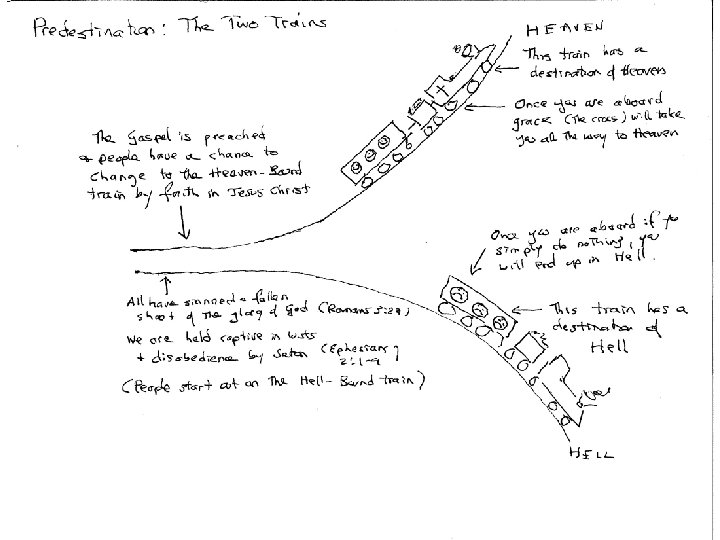 Predestination: The Two Trains
HEAVEN
This train has a
destination of Heaven
Once you are aboard
grace (the cross) will take
you all the way to Heaven
The Gospel is preached
& people have a chance to
change to the Heaven-Bound
train by faith in Jesus Christ
Once you are aboard if you
simply do nothing, you
will end up in Hell.
All have sinned & fallen
short of the glory of God (Romans 3:23)
We are held captive in lusts
+ disobedience by Satan (Ephesians
2:1-9
(People start out on the Hell-Bound train)
This train has a
destination of
Hell
HELL